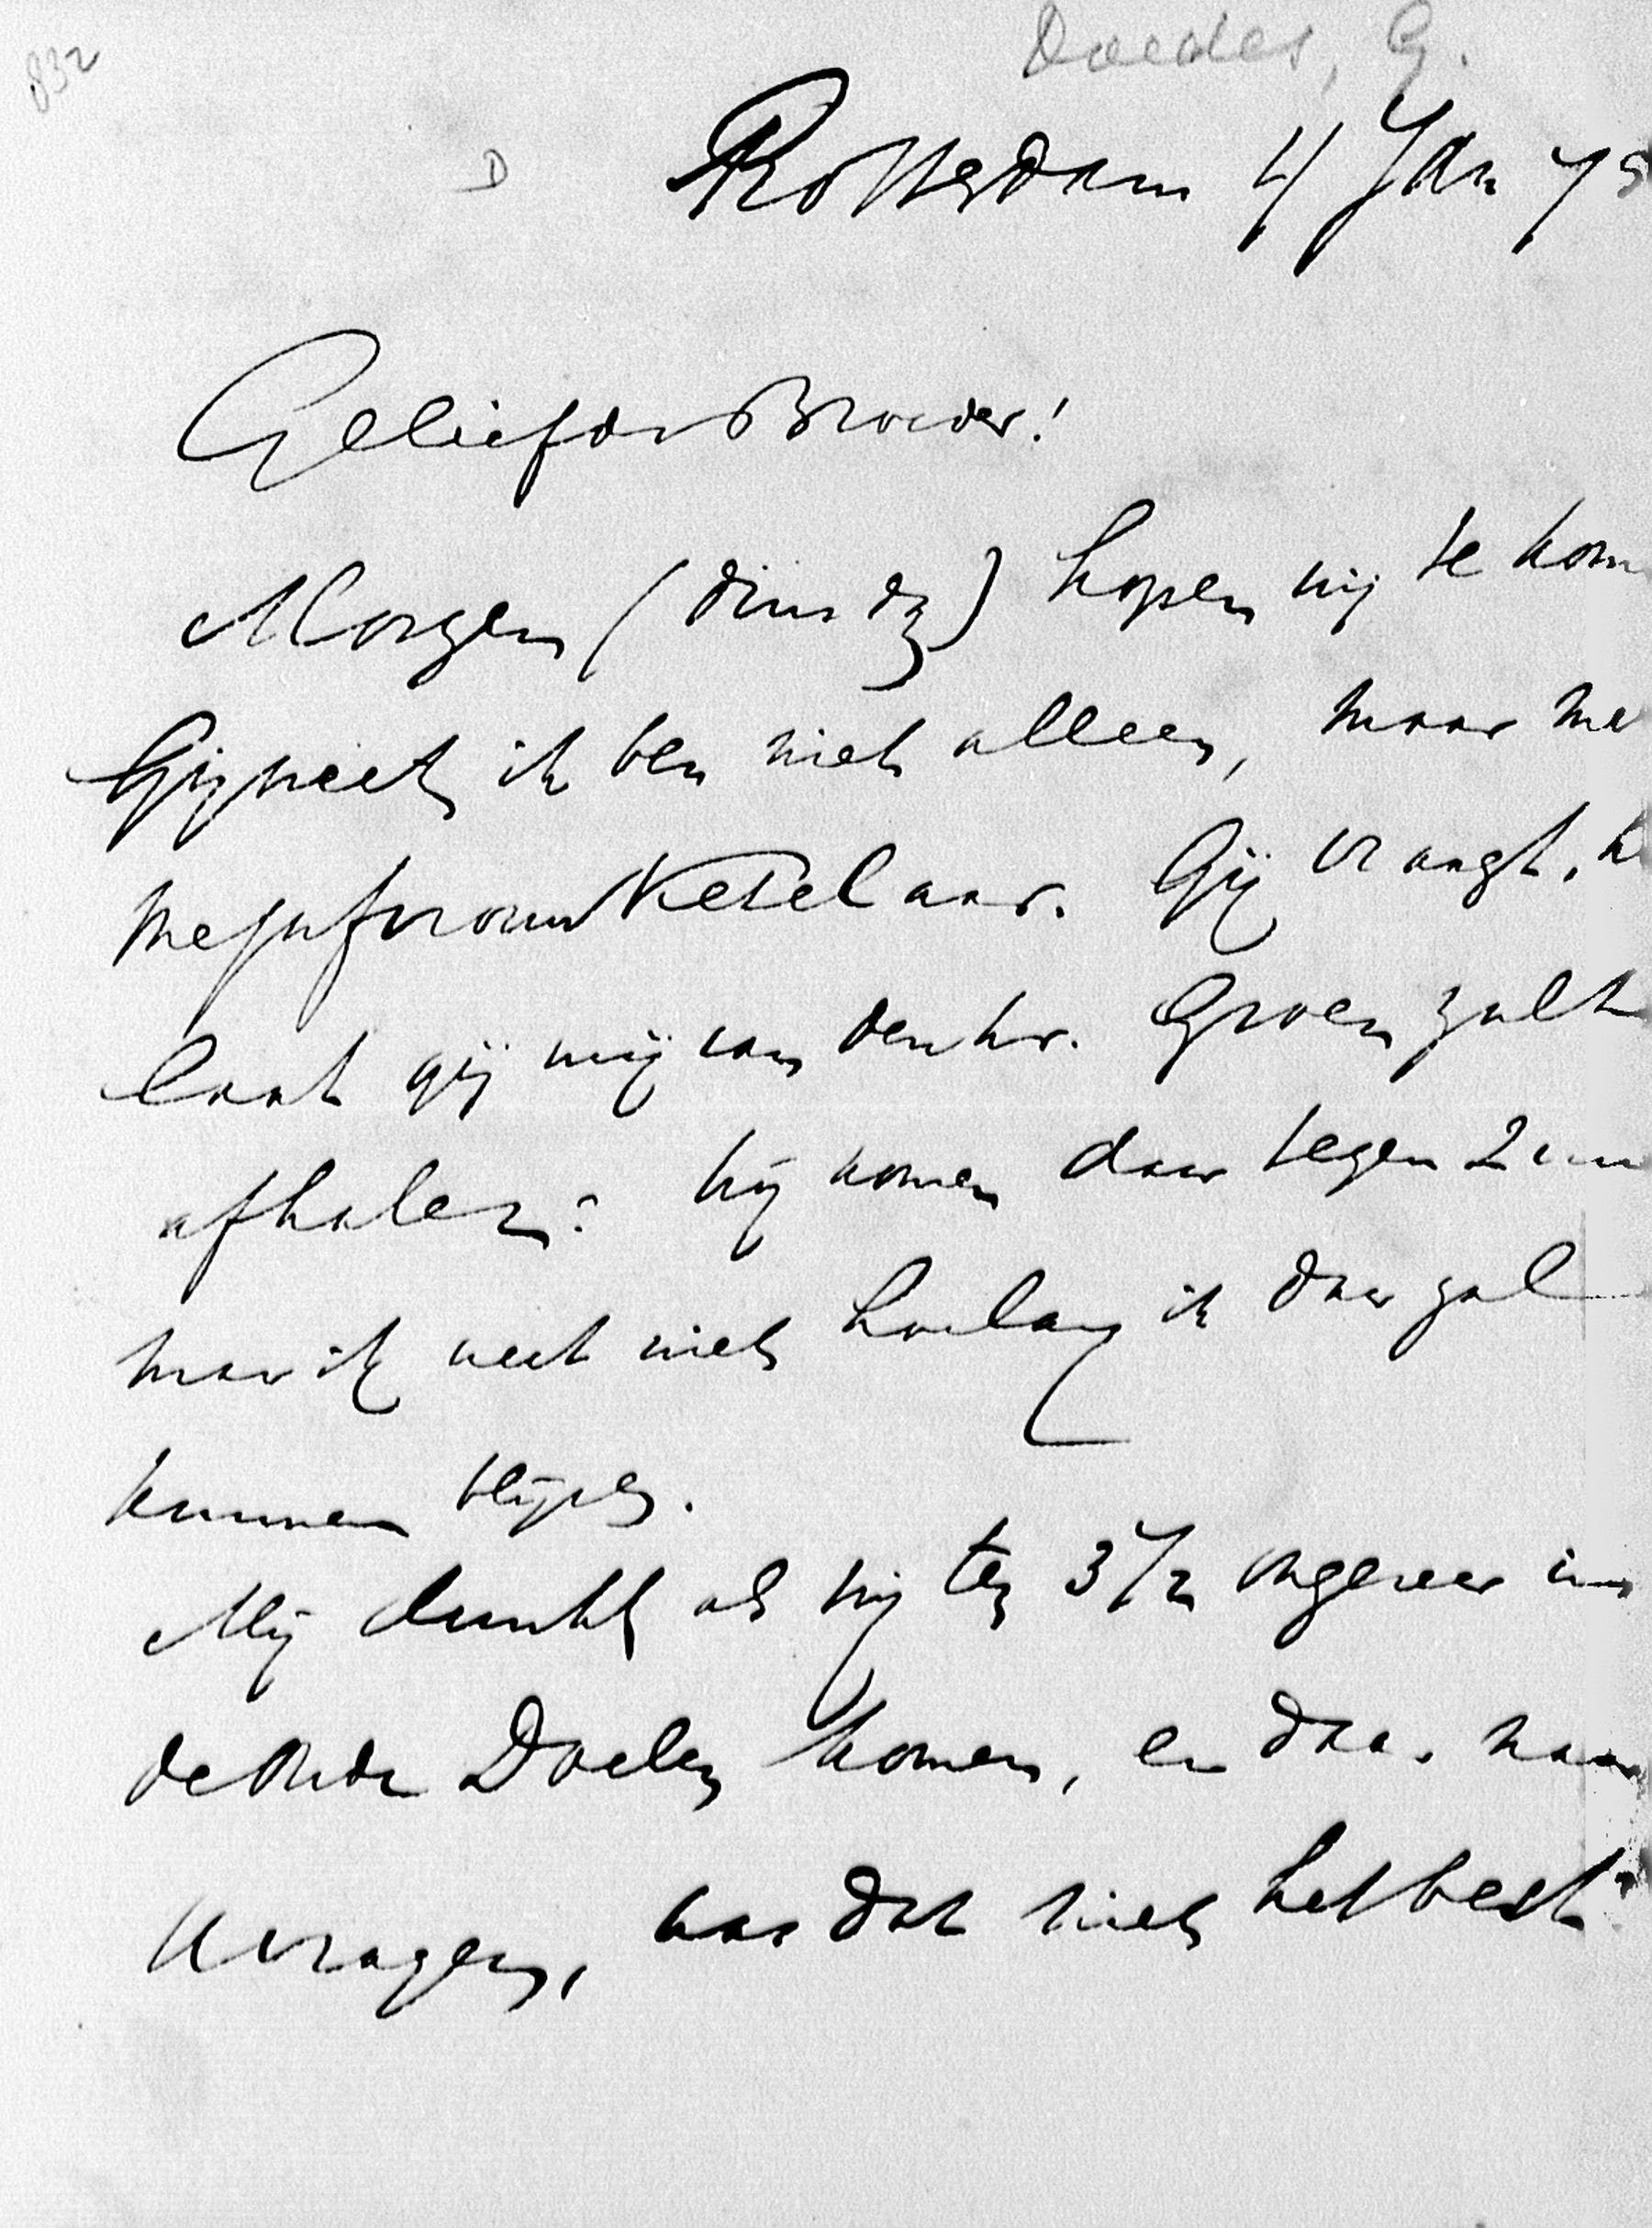 832
Doedes, G.
D
Rotterdam 4 Jan 75
Geliefde Broeder!
Morgen (dinsdg) hopen wij te kom
Gij weet ik ben niet alleen, maar me
Mejufvrouw Ketelaar. Gij vraagt,
laat gij mij van den hr. Groen zult
afhalen? Wij komen daar tegen 2 uu
maar ik weet niet hoelang ik daar zal
kunnen blijven.
Mij dunkt als wij teg 3 1/2 ongeveer in
de Oude Doelen komen, en daar naar
U vragen, was dat niet het best